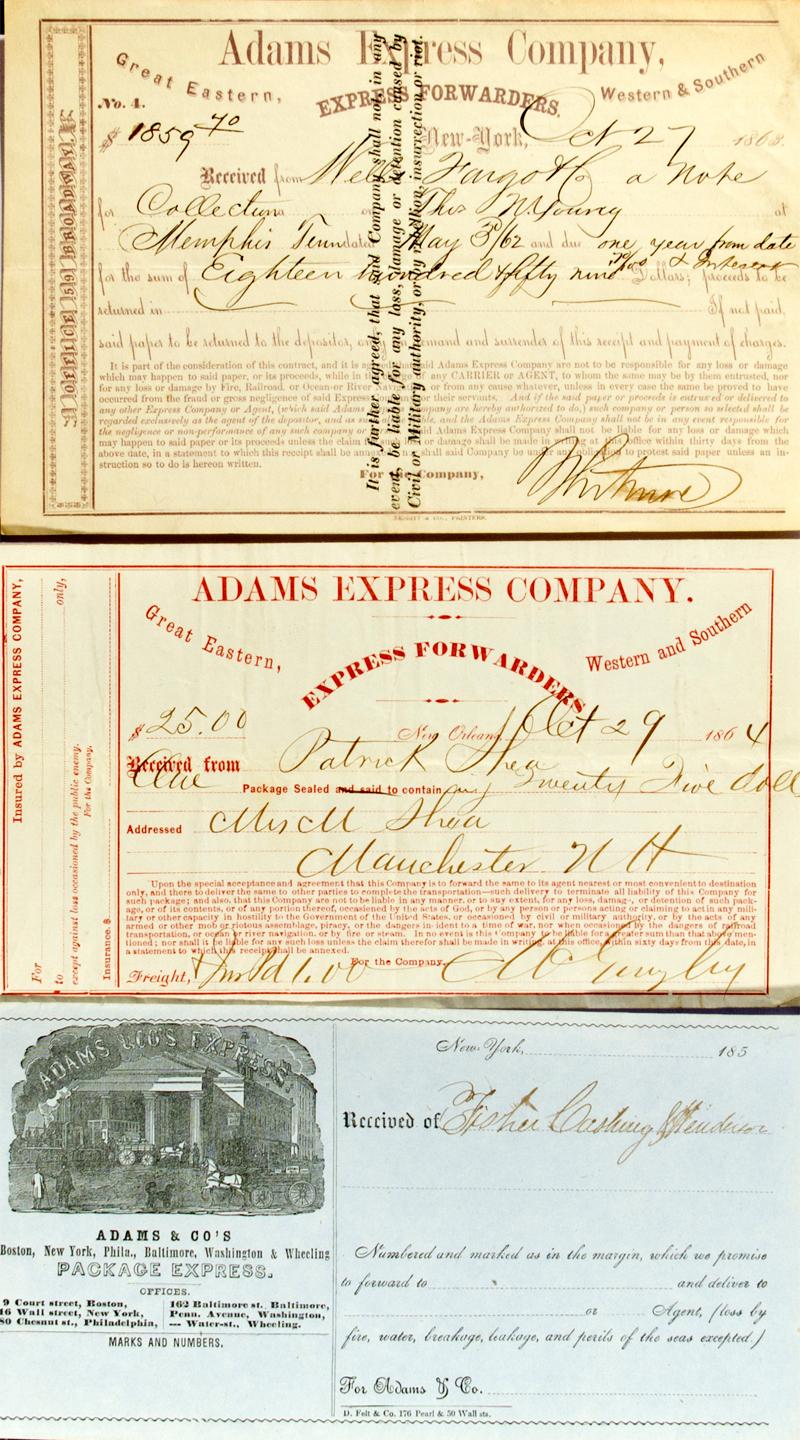 Adams Express Company,
Great Eastern, Western & Southern
EXPRESS FORWARDERS.
No. 4.
$ 1859 70 New-York, Oct 27 1863.
Received from Wells Fargo & Co a Note
for Collection on Thos N. Young at
Memphis Tenn date May 3d/62 and due one year from date
for the sum of Eighteen hundred & fifty nine 70/100 Dollars; & Interest proceeds to be
returned in If not paid,
said paper to be returned to the depositor, on demand and surrender of this receipt and payment of charges.
It is part of the consideration of this contract, and it is agreed, that said Adams Express Company are not to be responsible for any loss or damage
which may happen to said paper, or its proceeds, while in of any CARRIER or AGENT, to whom the same may be by them entrusted, nor
for any loss or damage by Fire, Railroad, or Ocean or River or from any cause whatever, unless in every case the same be proved to have
occurred from the fraud or gross negligence of said Express or their servants. And if the said paper or proceeds is entrusted or delivered to
any other Express Company or Agent, (which said Adams Company are hereby authorized to do,) such company or person so selected shall be
regarded exclusively as the agent of the depositor, and as such liable, and the Adams Express Company shall not be in any event responsible for
the negligence or non-performance of any such company or Adams Express Company shall not be liable for any loss or damage which
may happen to said paper or its proceeds unless the claim for loss or damage shall be made in writing at this office within thirty days from the
above date, in a statement to which this receipt shall be annexed shall said Company be under any obligation to protest said paper unless an in-
struction so to do is hereon written.
For the Company,
It is further agreed, that said Company shall not, in any
event, be liable for any loss, damage or detention caused by
Civil or Military authority, or by rebellion, insurrection or riot.
ADAMS EXPRESS COMPANY.
Great Eastern, Western and Southern
EXPRESS FORWARDERS
$25.00 New Orleans, Oct 29 1864
Received from Patrick Shea
One Package Sealed and said to contain Twenty Five doll
Addressed Mrs M Shea
Manchester N H
Upon the special acceptance and agreement that this Company is to forward the same to its agent nearest or most convenient to destination
only, and there to deliver the same to other parties to complete the transportation—such delivery to terminate all liability of this Company for
such package; and also, that this Company are not to be liable in any manner, or to any extent, for any loss, damage, or detention of such pack-
age, or of its contents, or of any portion thereof, occasioned by the acts of God, or by any person or persons acting or claiming to act in any mili-
tary or other capacity in hostility to the Government of the United States, or occasioned by civil or military authority, or by the acts of any
armed or other mob or riotous assemblage, piracy, or the dangers incident to a time of war, nor when occasioned by the dangers of railroad
transportation, or ocean or river navigation, or by fire or steam. In no event is this Company to be liable for a greater sum than that above men-
tioned; nor shall it be liable for any such loss unless the claim therefor shall be made in writing, at this office, within sixty days from this date, in
a statement to which this receipt shall be annexed.
For the Company,
Freight, 1.00
Insured by ADAMS EXPRESS COMPANY,
For
to only,
except against loss occasioned by the public enemy.
For the Company,
Insurance, $
ADAMS & CO'S EXPRESS.
ADAMS & CO'S
Boston, New York, Phila., Baltimore, Washington & Wheeling
PACKAGE EXPRESS.
OFFICES.
9 Court street, Boston,
16 Wall street, New York,
80 Chesnut st., Philadelphia,
162 Baltimore st. Baltimore,
Penn. Avenue, Washington,
— Water-st., Wheeling.
MARKS AND NUMBERS.
New-York, 185
Received of Fisher Cushing & Henderson
Numbered and marked as in the margin, which we promise
to forward to and deliver to
or Agent, (loss by
fire, water, breakage, leakage, and perils of the seas excepted.)
For Adams & Co.
D. Felt & Co. 176 Pearl & 50 Wall sts.